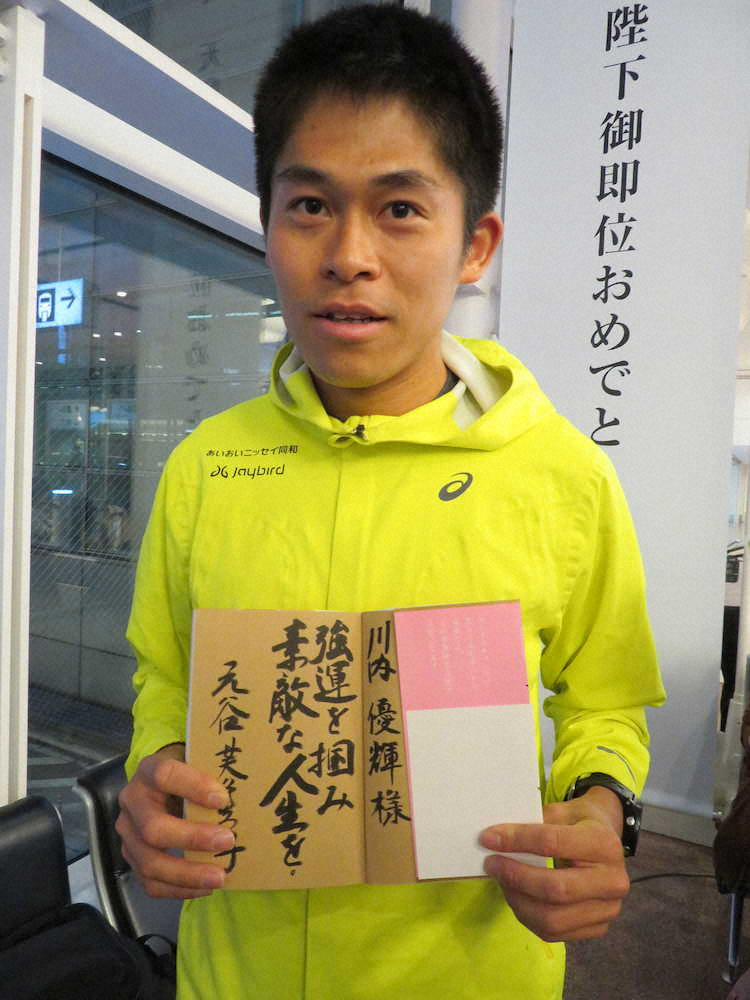 陛下御即位おめでと
あいおいニッセイ同和
Jaybird
川内 優輝 様
強運を掴み
素敵な人生を.
元谷 芙美子